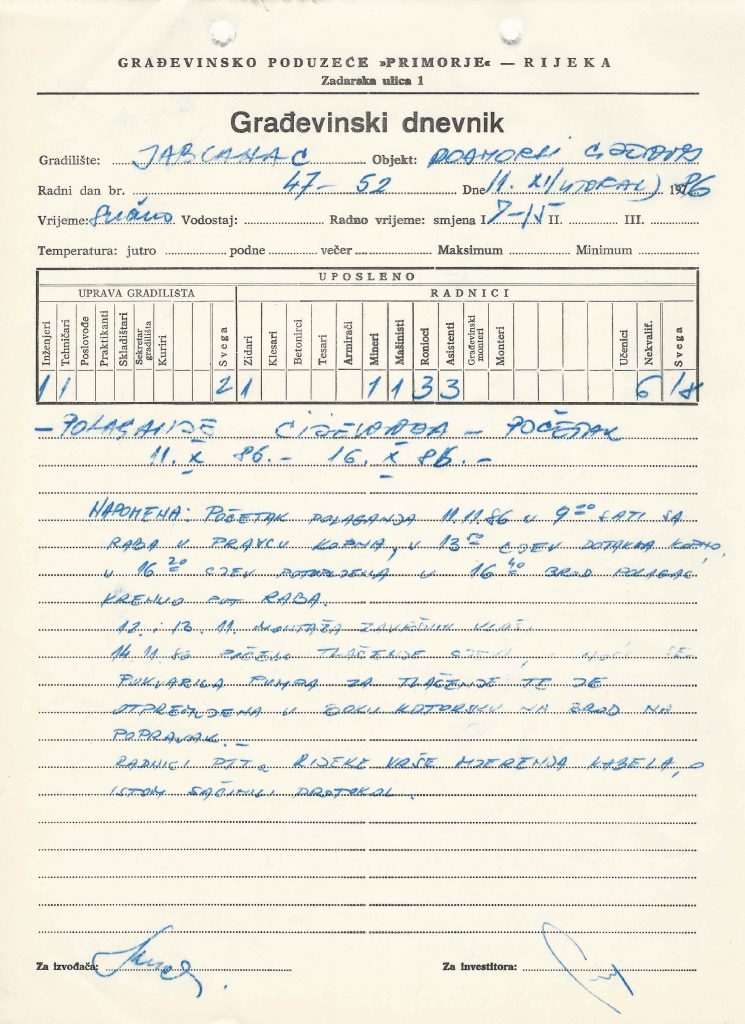 GRAĐEVINSKO PODUZEĆE »PRIMORJE« — RIJEKA
Zadarska ulica 1
Građevinski dnevnik
Gradilište: JABLANAC Objekt: PODMORSKI
Radni dan br. 47 – 52 Dne 11. XI (UTORAK) 1986
Vrijeme: Vodostaj: Radno vrijeme: smjena I. 7–15 II. III.
Temperatura: jutro podne večer Maksimum Minimum
UPOSLENO
UPRAVA GRADILIŠTA RADNICI
Inženjeri Tehničari Poslovođe Praktikanti Skladištari Sekretar gradilišta Kuriri Svega Zidari Klesari Betonirci Tesari Armirači Mineri Mašinisti Ronioci Asistenti Građevinski monteri Monteri Učenici Nekvalif. Svega
1 1 2 1 1 1 3 3 6 18
– POLAGANJE CIJEVOVODA – POČETAK
11. X 86. – 16. X 86. –
NAPOMENA: POČETAK POLAGANJA 11.11.86 U 9 20 SATI SA
RABA U PRAVCU KOPNA, U 13 50 CJEV DOTAKLA KOPNO,
U 16 20 CJEV POTOPLJENA U 16 40 BROD POLAGAČ
KRENUO PUT RABA.
12. i 13. 11. MONTAŽA ZAVRŠNIH
14 11 86 TLAČENJE CJEVI, SE
POKVARILA PUMPA ZA TLAČENJE TE JE
OTPREMLJENA U BOKU KOTORSKU NA BROD NA
POPRAVAK. –
RADNICI PTT RIJEKE VRŠE MJERENJA KABELA, O
ISTOM SAČINILI PROTOKOL.
Za izvođača: Za investitora: